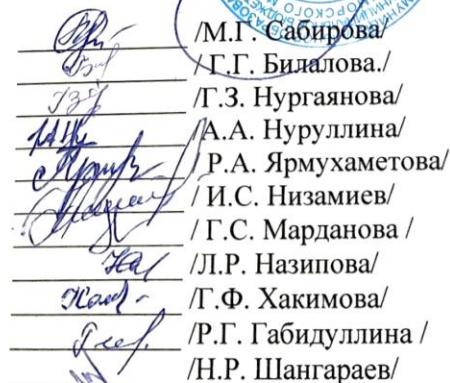 /М.Г. Сабирова/
/ Г.Г. Билалова./
/Г.З. Нургаянова/
/А.А. Нуруллина/
/ Р.А. Ярмухаметова/
/ И.С. Низамиев/
/ Г.С. Марданова /
/Л.Р. Назипова/
/Г.Ф. Хакимова/
/Р.Г. Габидуллина /
/Н.Р. Шангараев/